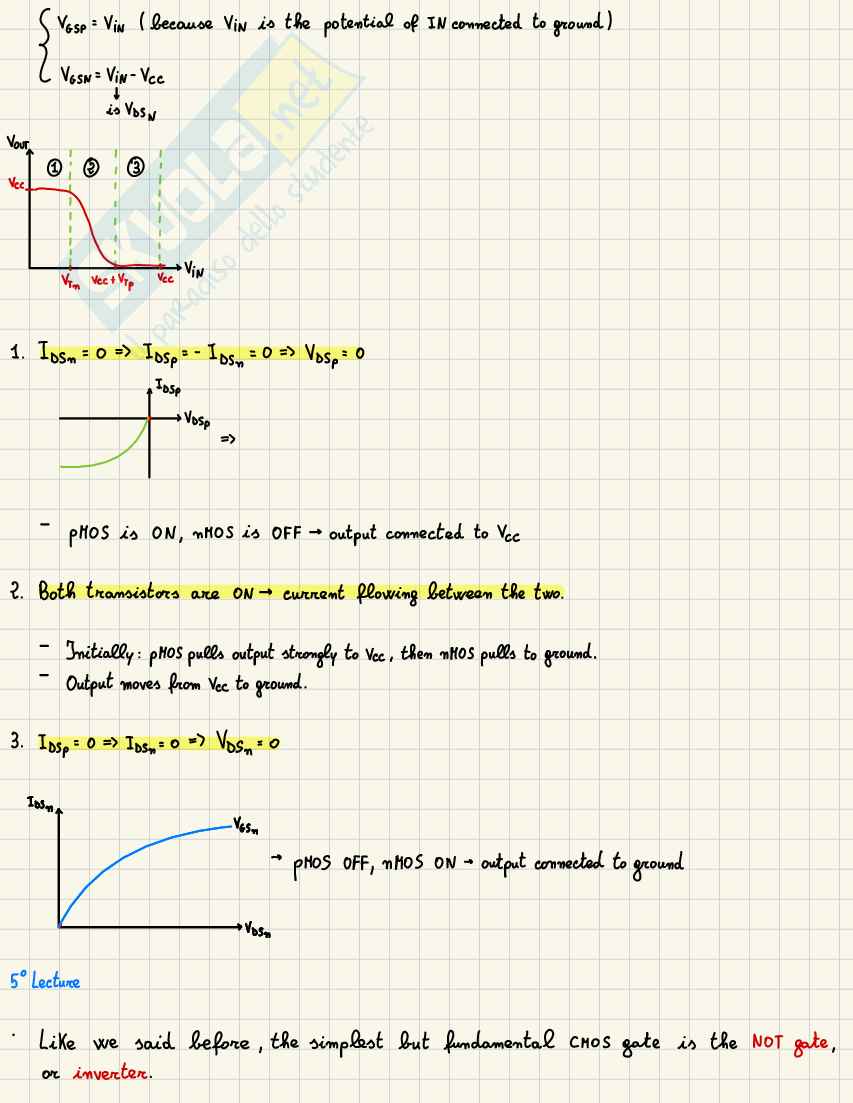 V_GSP = V_iN ( because V_iN is the potential of IN connected to ground )
V_GSN = V_iN - V_CC
↓
is V_DSN
V_OUT
① ② ③
V_CC
V_iN
V_Tn V_CC + V_Tp V_CC
SKUOLA.net
il paradiso dello studente
1. I_DSn = 0 => I_DSp = - I_DSn = 0 => V_DSp = 0
I_DSp
V_DSp
=>
- pMOS is ON, nMOS is OFF → output connected to V_CC
2. Both transistors are ON → current flowing between the two.
- Initially: pMOS pulls output strongly to V_CC, then nMOS pulls to ground.
- Output moves from V_CC to ground.
3. I_DSp = 0 => I_DSn = 0 => V_DSn = 0
I_DSn
V_GSn
→ pMOS OFF, nMOS ON → output connected to ground
V_DSn
5° Lecture
· Like we said before, the simplest but fundamental CMOS gate is the NOT gate,
or inverter.